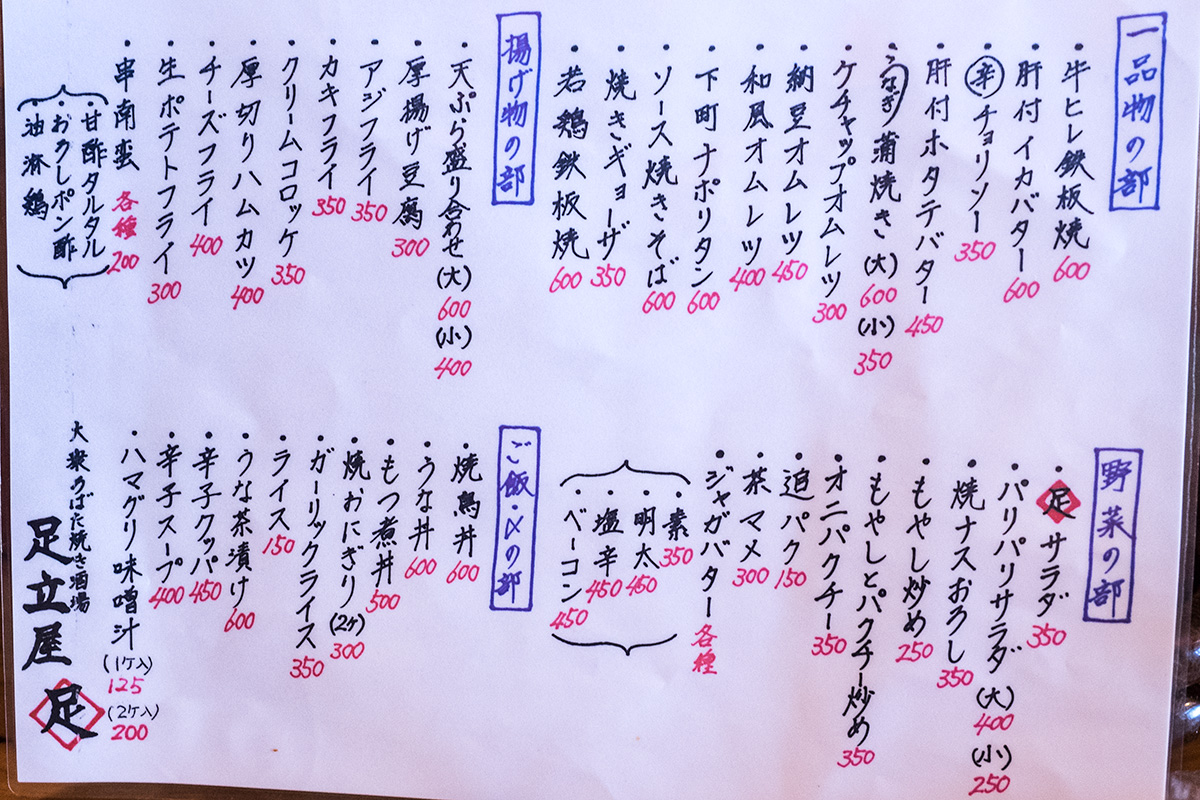 一品物の部
・牛ヒレ鉄板焼 600
・肝付イカバター 600
・辛チョリソー 350
・肝付ホタテバター 450
・うなぎ蒲焼き (大) 600 (小) 350
・ケチャップオムレツ 300
・納豆オムレツ 450
・和風オムレツ 400
・下町ナポリタン 600
・ソース焼きそば 600
・焼きギョーザ 350
・若鶏鉄板焼 600
揚げ物の部
・天ぷら盛り合わせ (大) 600 (小) 400
・厚揚げ豆腐 300
・アジフライ 350
・カキフライ 350
・クリームコロッケ 350
・厚切りハムカツ 400
・チーズフライ 400
・生ポテトフライ 300
・串南蛮 各種 200
・甘酢タルタル
・おろしポン酢
・油淋鶏
野菜の部
・足サラダ 350
・パリパリサラダ (大) 400 (小) 250
・焼ナスおろし 350
・もやし炒め 250
・もやしとパクチー炒め 350
・オニパクチー 350
・追パク 150
・茶マメ 300
・ジャガバター 各種
・素 350
・明太 450
・塩辛 450
・ベーコン 450
ご飯・〆の部
・焼鳥丼 600
・うな丼 600
・もつ煮丼 500
・焼おにぎり (2ケ) 300
・ガーリックライス 350
・ライス 150
・うな茶漬け 600
・辛子クッパ 450
・辛子スープ 400
・ハマグリ味噌汁 (1ケ入) 125 (2ケ入) 200
大衆ろばた焼き酒場
足立屋 足